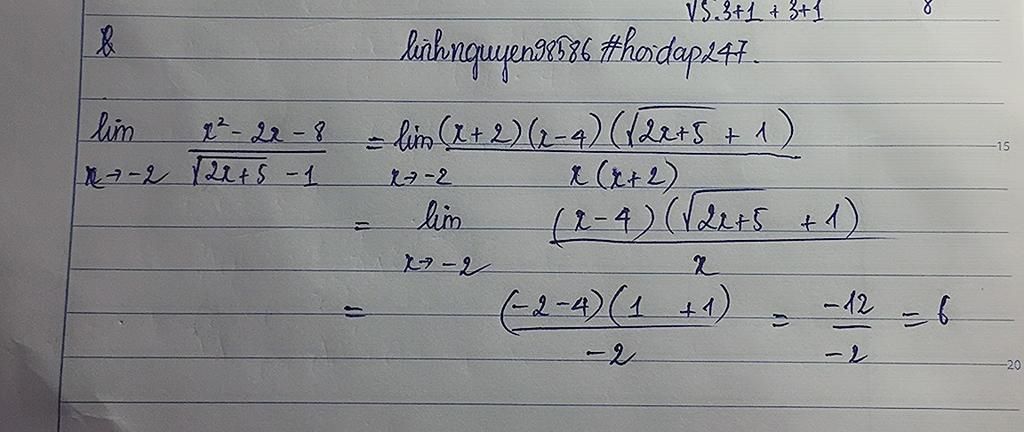 √5.3+1 + 3+1 8
linhnguyen98586 #hoidap247.
lim x→-2 (x² - 2x - 8)/(√2x+5 - 1) = lim x→-2 (x+2)(x-4)(√2x+5 + 1)/x(x+2)
15
= lim x→-2 (x-4)(√2x+5 + 1)/x
= (-2-4)(1 +1)/-2 = -12/-2 = 6
20